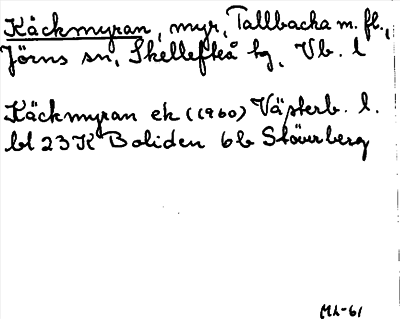 Käckmyran, myr, Tallbacka m. fl.,
Jörns sn, Skellefteå tg, Vb. l
Käckmyran ek (1960) Västerb. l.
bl 23 K Boliden 6b Stöverberg
ML-61